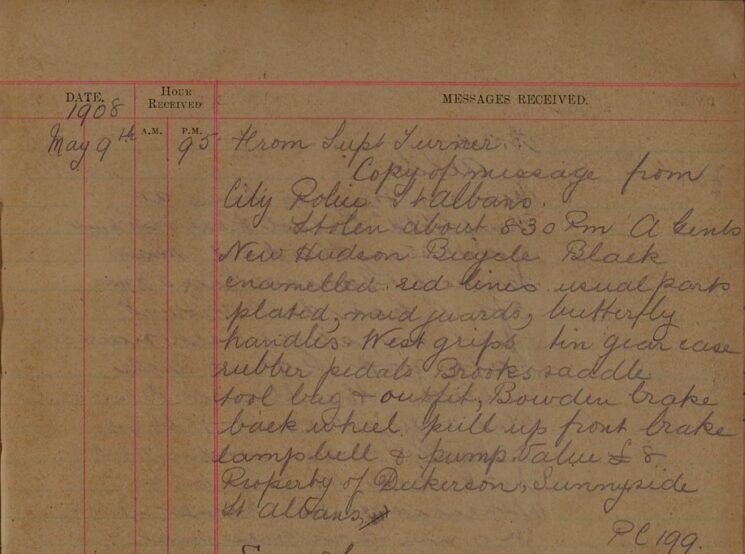 DATE. HOUR RECEIVED MESSAGES RECEIVED.
1908
A.M. P.M.
May 9th 9 5 From Supt Turner.
Copy of message from
City Police St Albans.
Stolen about 8.30 Pm A Gents
New Hudson Bicycle Black
enamelled red lines usual parts
plated, mud guards, butterfly
handles West grips tin gear case
rubber pedals Brooks saddle
tool bag & outfit, Bowden brake
back wheel pull up front brake
lamp bell & pump value £8
Property of Dickerson, Sunnyside
St Albans,
PC 199.